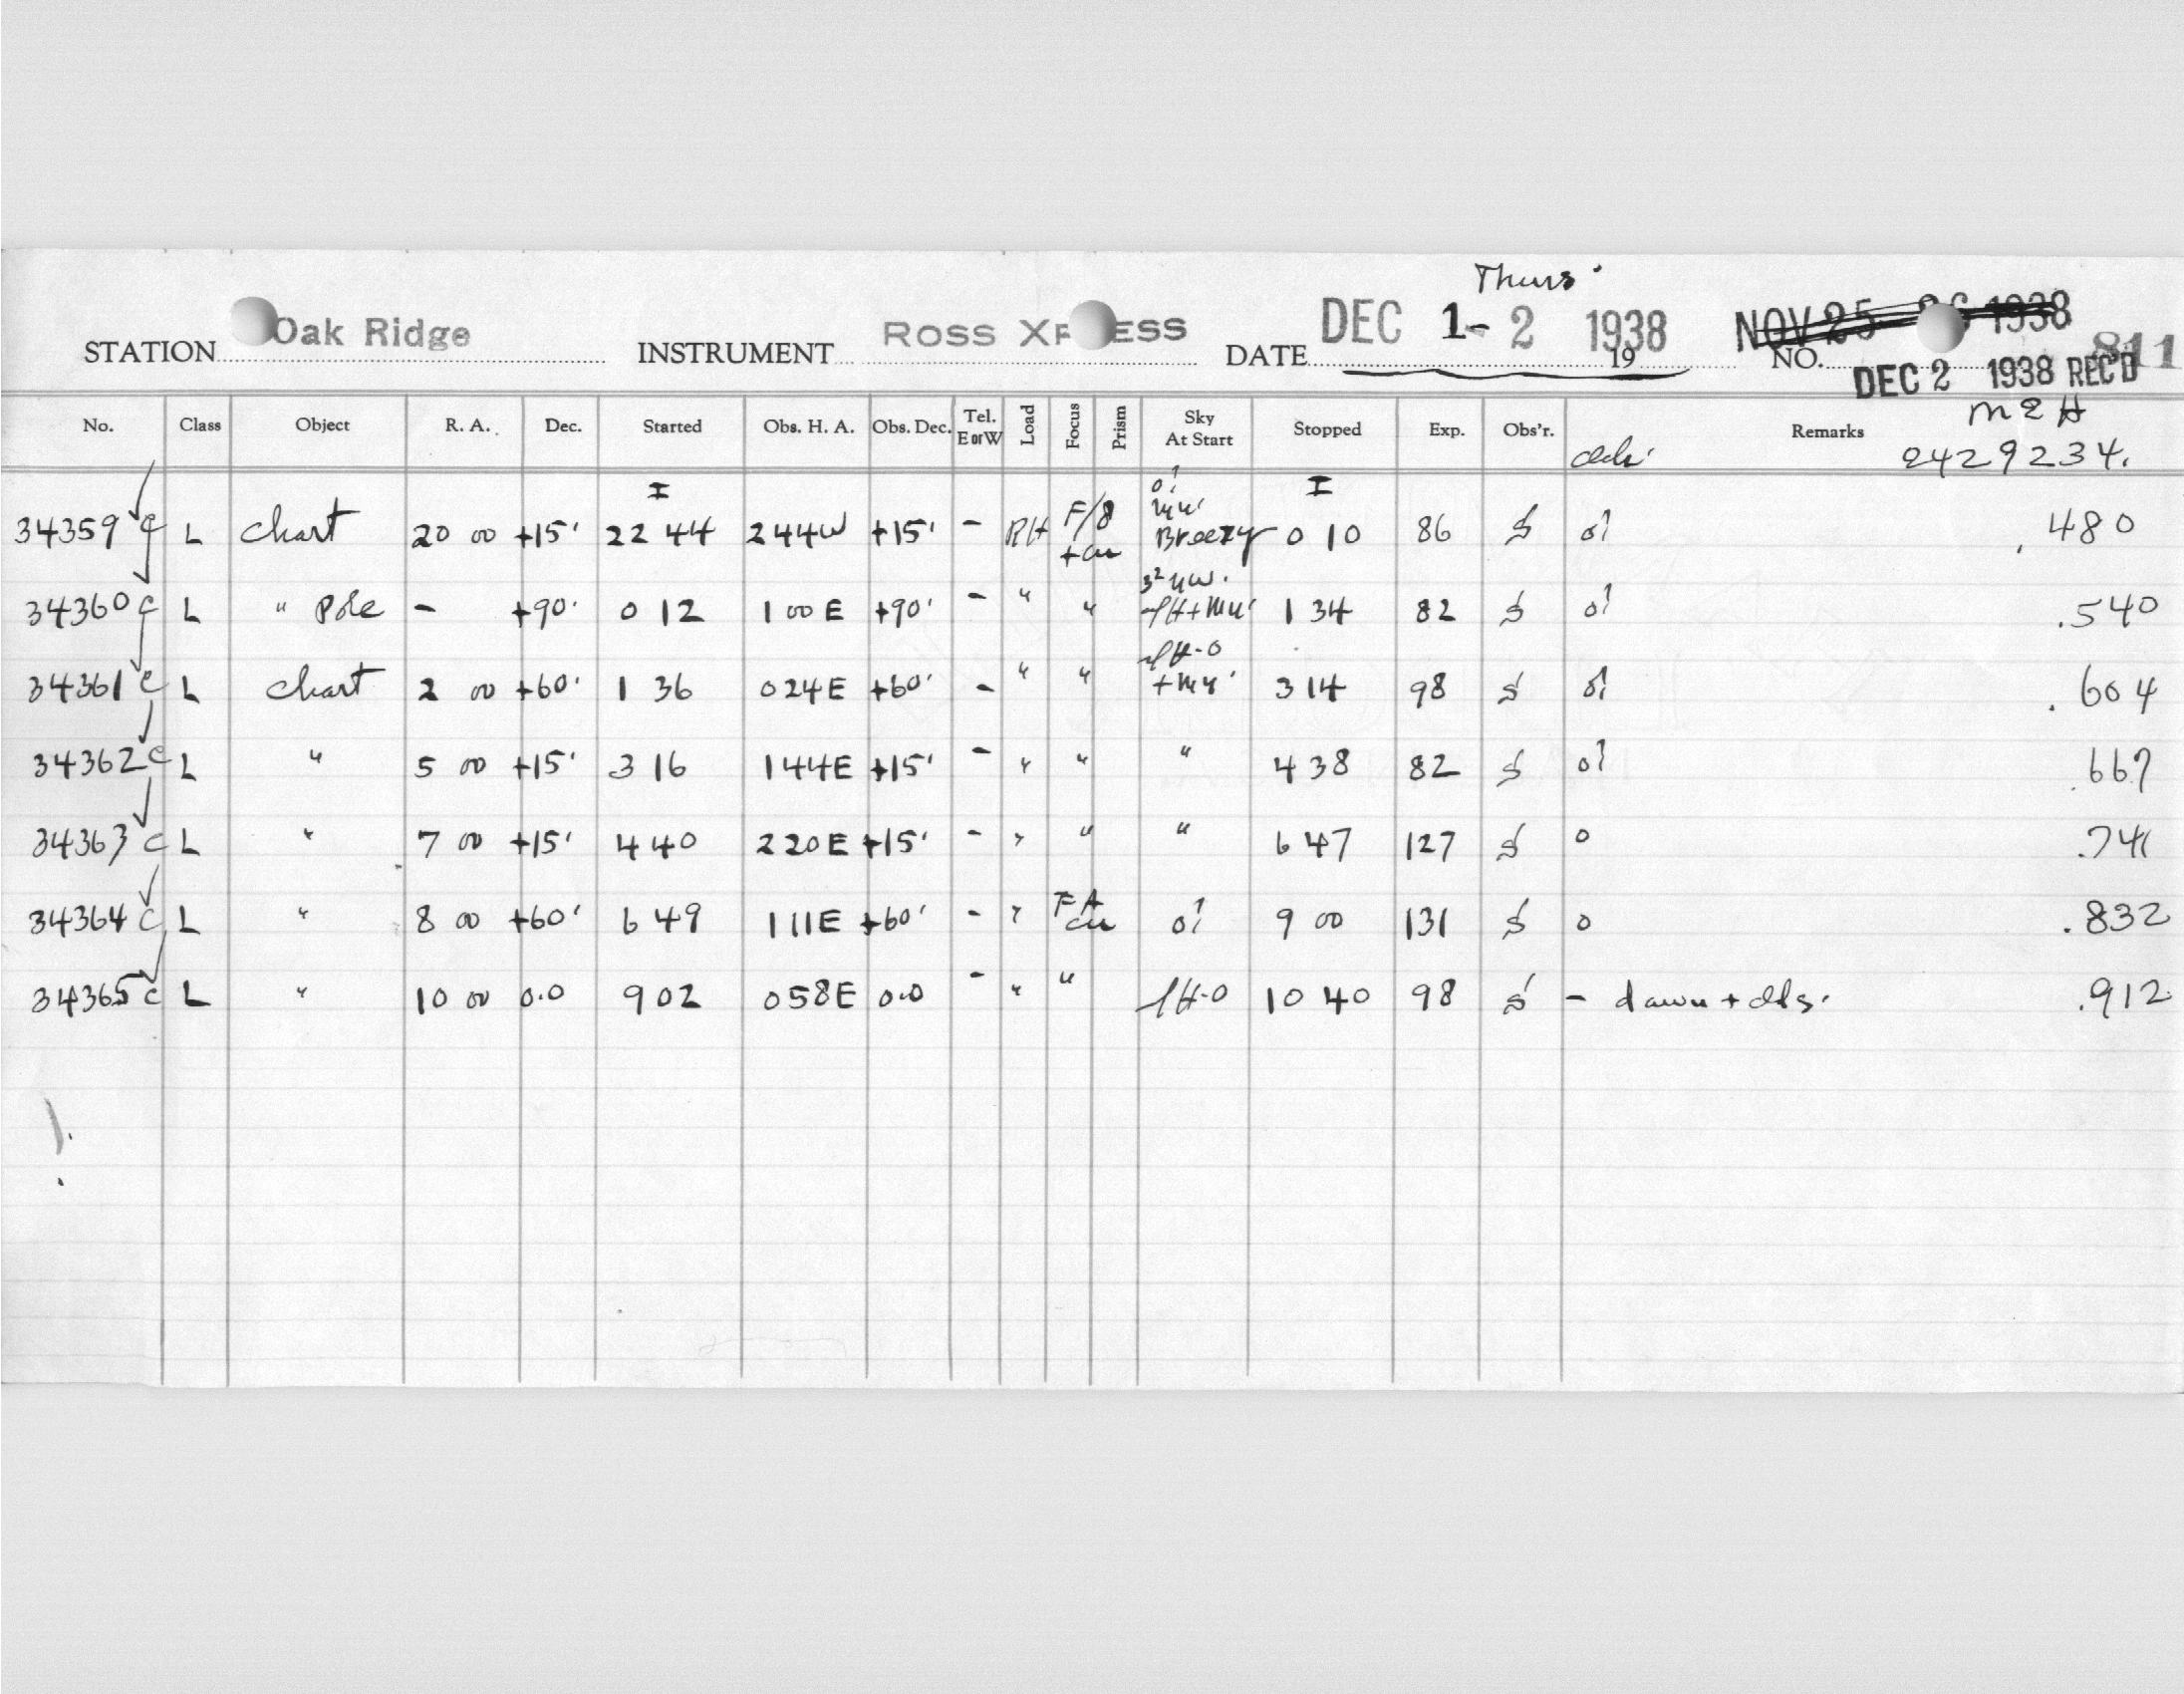 Thurs.
STATION Oak Ridge INSTRUMENT ROSS XPRESS DATE DEC 1-2 1938 19 NOV 25 26 1938 NO. 811
DEC 2 1938 REC'D
No. Class Object R. A. Dec. Started Obs. H. A. Obs. Dec. Tel. E or W Load Focus Prism Sky At Start Stopped Exp. Obs'r. Remarks
2429234.
34359 c L chart 20 00 +15° 22 44 2 44 W +15° - RH F/8 Breezy 0 10 86 S .480
34360 c L " Pole - +90° 0 12 1 00 E +90° - " " 1 34 82 S .540
34361 c L chart 2 00 +60° 1 36 0 24 E +60° - " " 3 14 98 S .604
34362 c L " 5 00 +15° 3 16 1 44 E +15° - " " " 4 38 82 S .667
34363 c L " 7 00 +15° 4 40 2 20 E +15° - " " " 6 47 127 S 0 .741
34364 c L " 8 00 +60° 6 49 1 11 E +60° - " 9 00 131 S 0 .832
34365 c L " 10 00 0.0 9 02 0 58 E 0.0 - " " 10 40 98 S - dawn + clds. .912